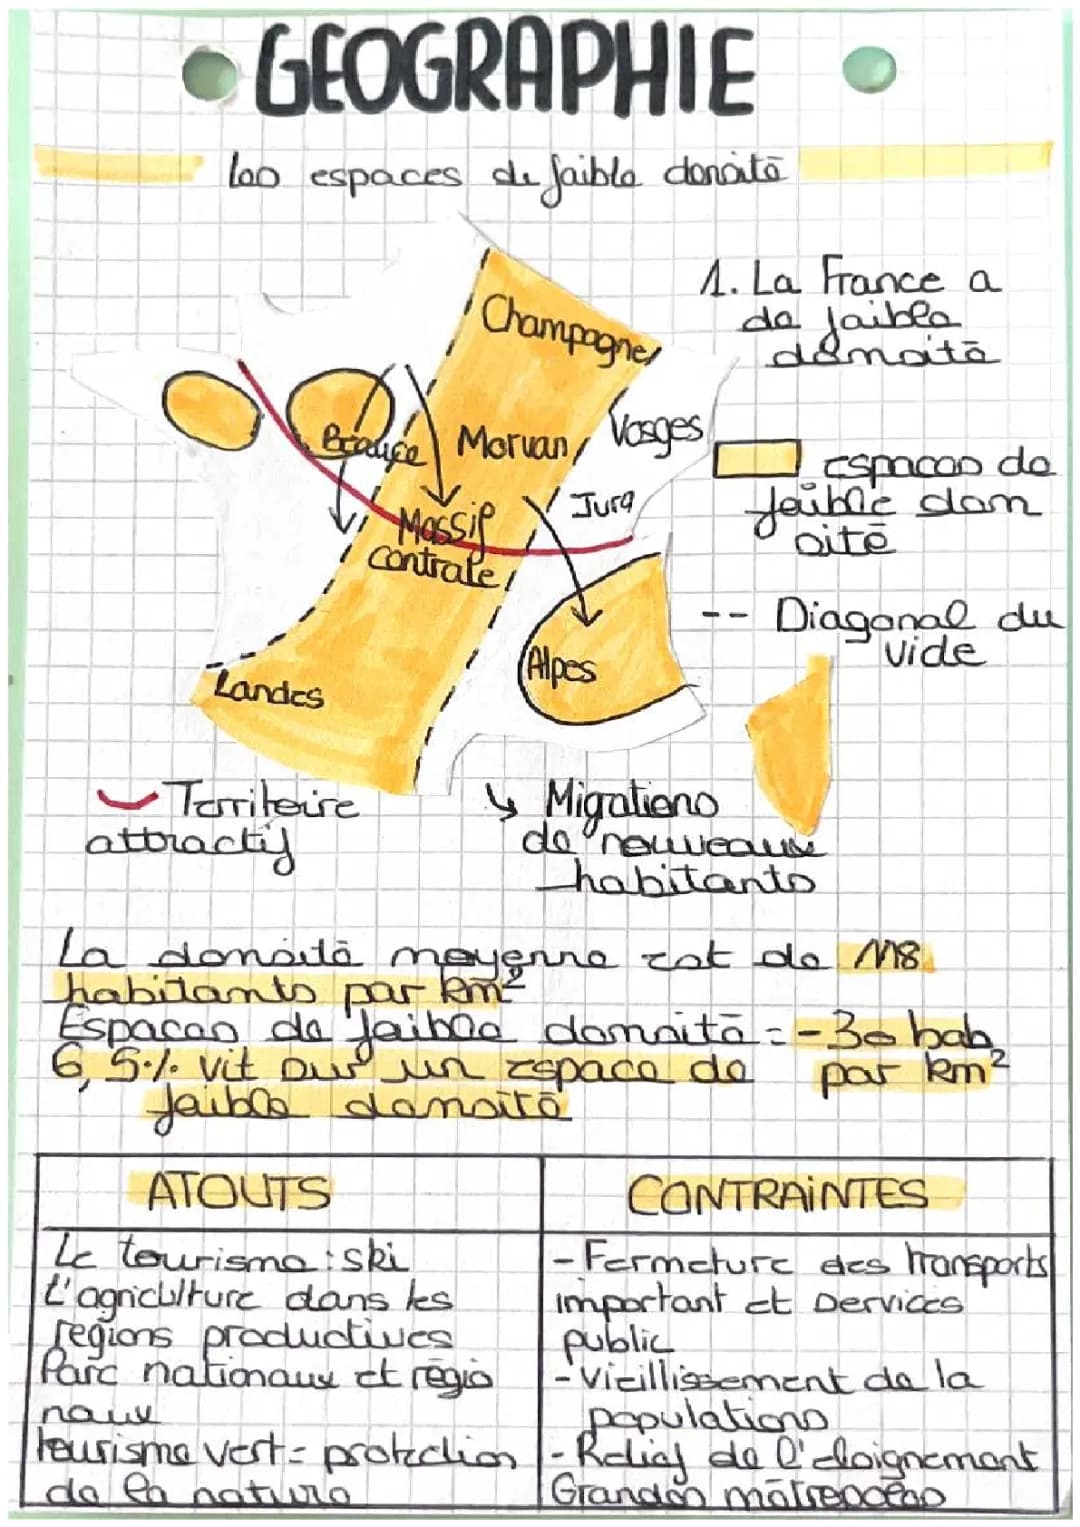 GEOGRAPHIE
Les espaces de faible densité
Champagne
1. La France a
de faible
densité
Beauce
Morvan
Vosges
espaces de
faible den
sité
Jura
Massif
contrale
-- Diagonal du
vide
Alpes
Landes
Territoire
attractif
Migations
de nouveaux
habitants
La densité moyenne est de 118
habitants par km²
Espaces de faible densité = -30 hab
par km²
6,5% vit sur un espace de
faible densité
ATOUTS
Le tourisme : ski
L'agriculture dans les
regions productives
Parc nationaux et régio
naux
tourisme vert = protection
de la nature
CONTRAINTES
- Fermeture des transports
important et services
public
- Vieillissement de la
populations
- Relief de l'eloignement
Grandes métropoles